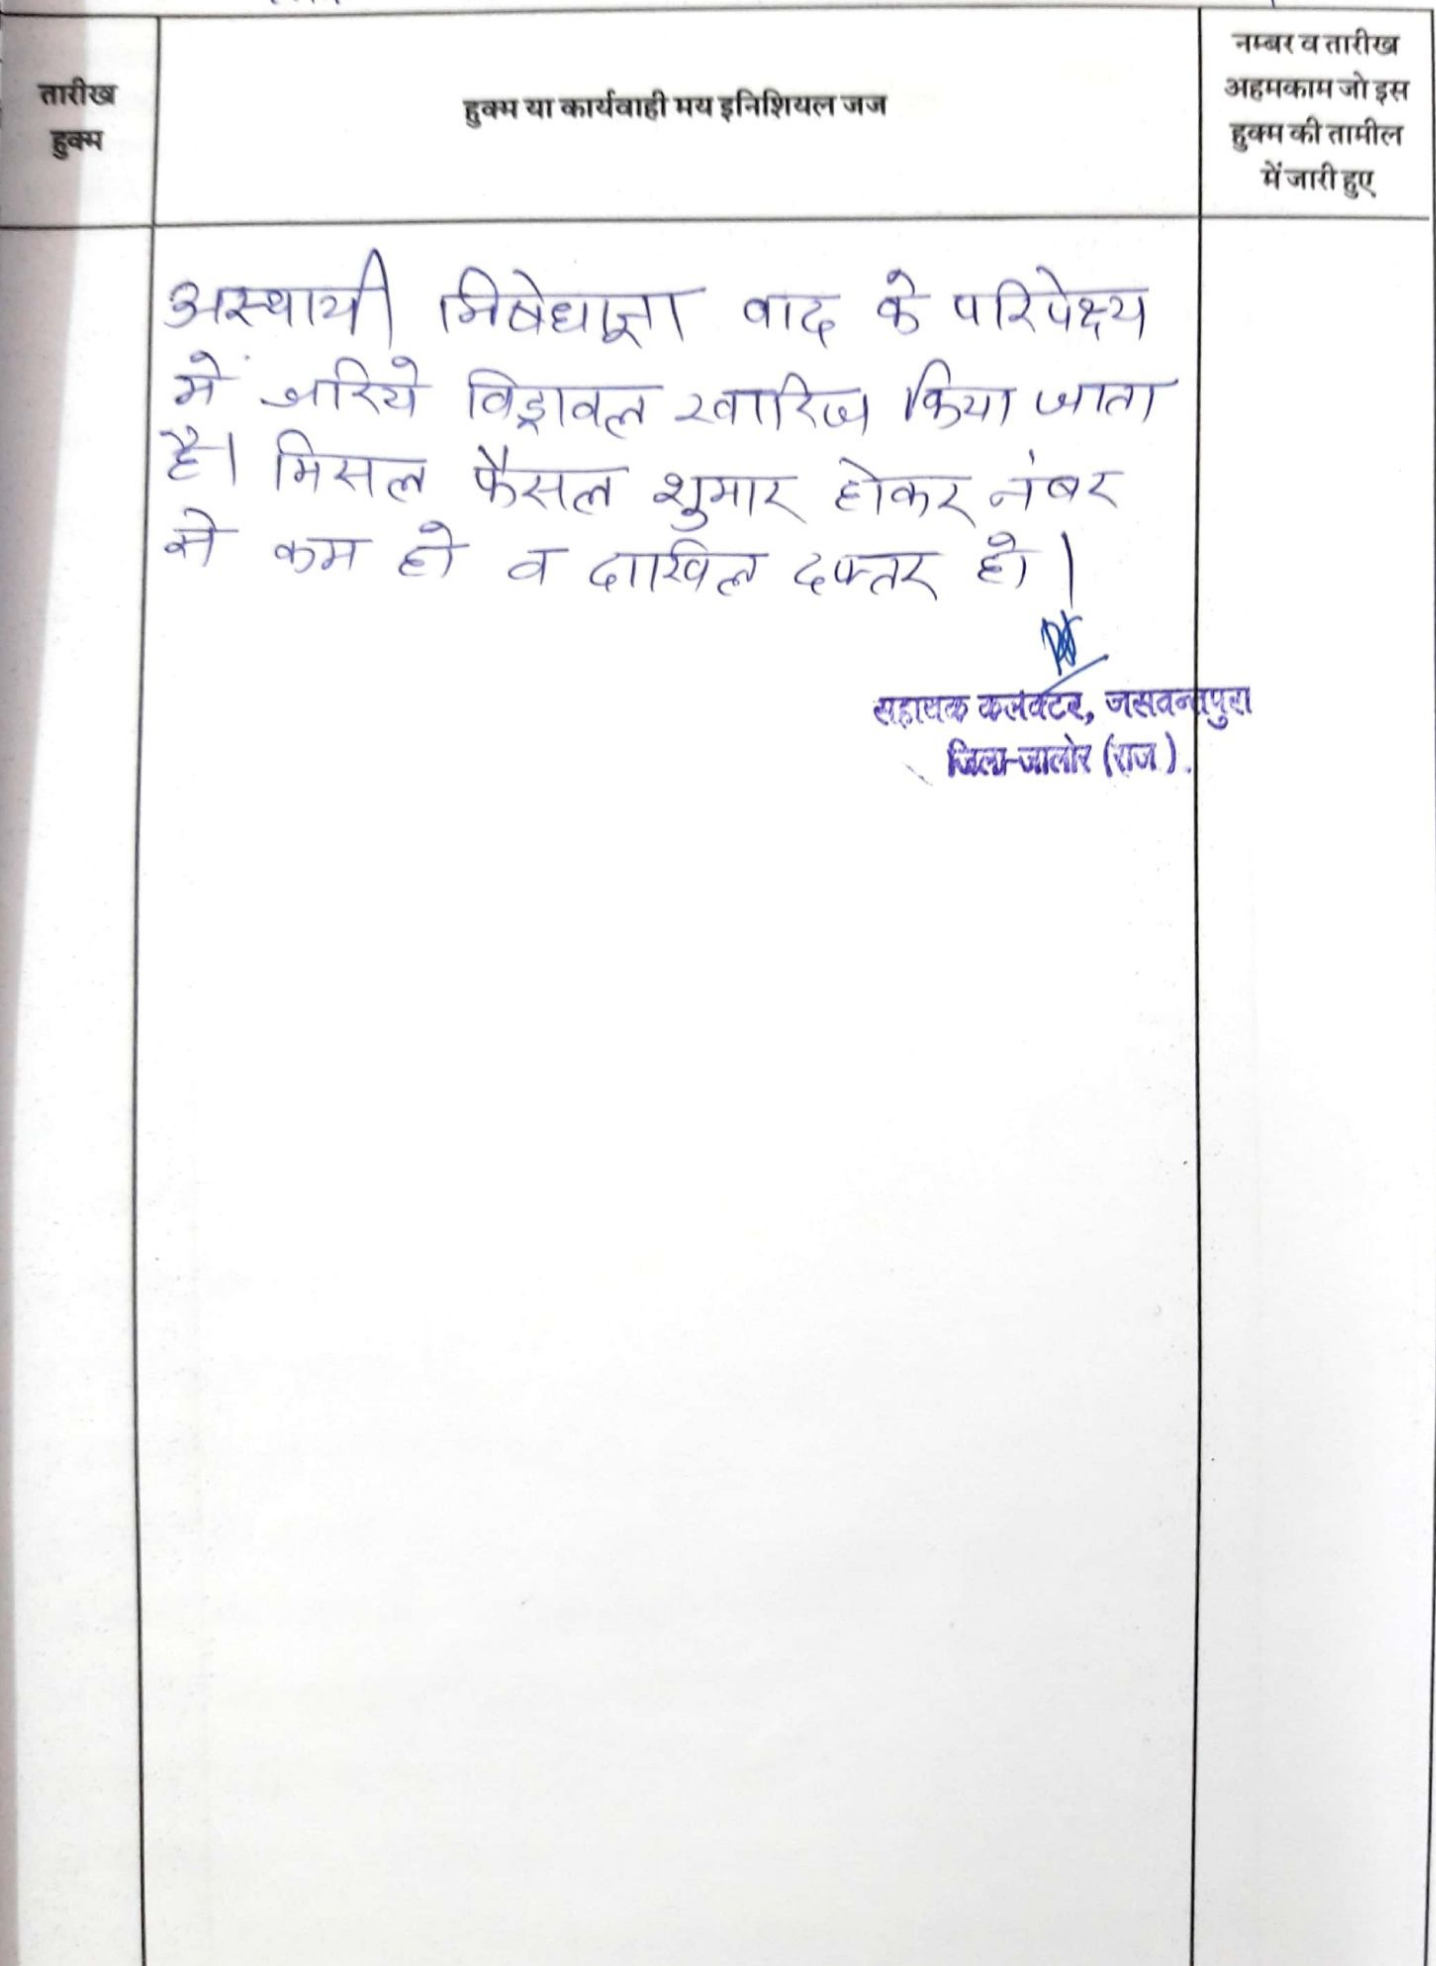 तारीख
हुक्म
हुक्म या कार्यवाही मय इनिशियल जज
नम्बर व तारीख
अहमकाम जो इस
हुक्म की तामील
में जारी हुए
अस्थायी निषेधाज्ञा वाद के परिपेक्ष्य
में जरिये विड्रावल खारिज किया जाता
है। मिसल फैसल शुमार होकर नंबर
से कम हो व दाखिल दफ्तर हो।
सहायक कलक्टर, जसवन्तपुरा
जिला-जालोर (राज).